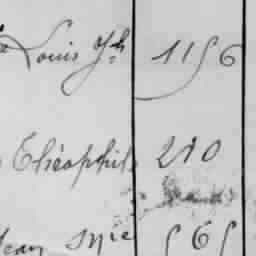 Louis Jh 1156
Théophile 210
Jean Mie 565